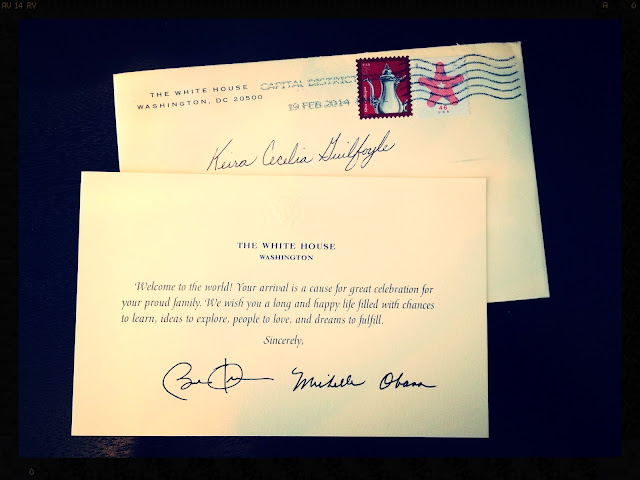 AV 14 RV
A
0
THE WHITE HOUSE
WASHINGTON, DC 20500
CAPITAL DISTRICT
19 FEB 2014
46
USA
Keira Cecilia Guilfoyle
THE WHITE HOUSE
WASHINGTON
Welcome to the world! Your arrival is a cause for great celebration for
your proud family. We wish you a long and happy life filled with chances
to learn, ideas to explore, people to love, and dreams to fulfill.
Sincerely,
Michelle Obama
0